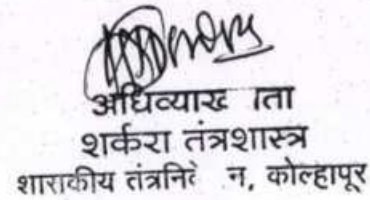 अधिव्याख ता
शर्करा तंत्रशास्त्र
शाराकीय तंत्रनिे न, कोल्हापूर